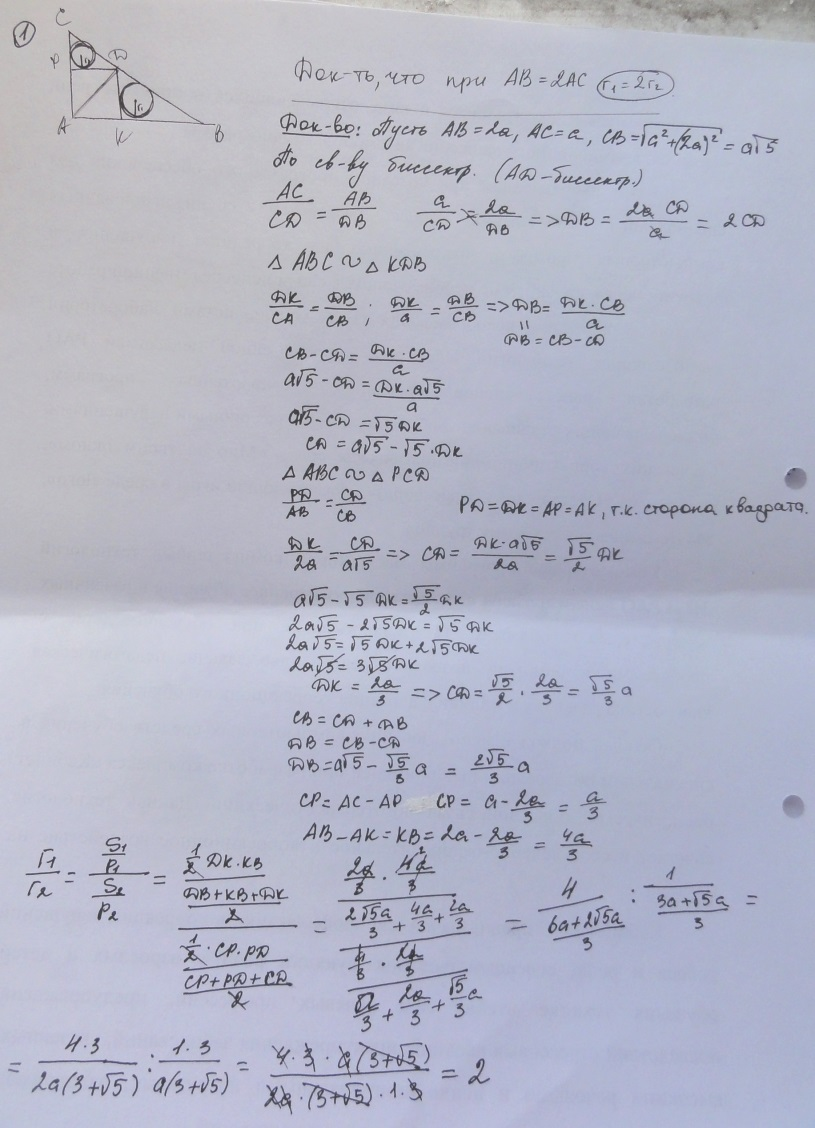 ①
C
P D
r₂
r₁
A K B
Док-ть, что при AB = 2AC r₁ = 2r₂
Док-во: Пусть AB = 2a, AC = a, CB = √(a² + (2a)²) = a√5
По св-ву биссектр. (AD – биссектр.)
AC/CD = AB/DB a/CD = 2a/DB => DB = 2a CD/a = 2CD
△ ABC ∾ △ KDB
DK/CA = DB/CB ; DK/a = DB/CB => DB = DK·CB/a
DB = CB – CD
CB – CD = DK·CB/a
a√5 – CD = DK·a√5/a
a√5 – CD = √5 DK
CD = a√5 – √5·DK
△ ABC ∾ △ PCD
PD/AB = CD/CB PD = DK = AP = AK, т.к. сторона квадрата.
DK/2a = CD/a√5 => CD = DK·a√5/2a = √5/2 DK
a√5 – √5 DK = √5/2 DK
2a√5 – 2√5 DK = √5 DK
2a√5 = √5 DK + 2√5 DK
2a√5 = 3√5 DK
DK = 2a/3 => CD = √5/2 · 2a/3 = √5/3 a
CB = CD + DB
DB = CB – CD
DB = a√5 – √5/3 a = 2√5/3 a
CP = AC – AP CP = a – 2a/3 = a/3
AB – AK = KB = 2a – 2a/3 = 4a/3
r₁/r₂ = (S₁/p₁)/(S₂/p₂) = (½ DK·KB/((DB+KB+DK)/2))/(½·CP·PD/((CP+PD+CD)/2)) = ((2a/3 · 4a/3)/(2√5a/3 + 4a/3 + 2a/3))/((a/3 · 2a/3)/(a/3 + 2a/3 + √5/3 a)) = 4/((6a+2√5a)/3) : 1/((3a+√5a)/3) =
= 4·3/(2a(3+√5)) : 1·3/(a(3+√5)) = 4·3·a(3+√5)/(2a·(3+√5)·1·3) = 2